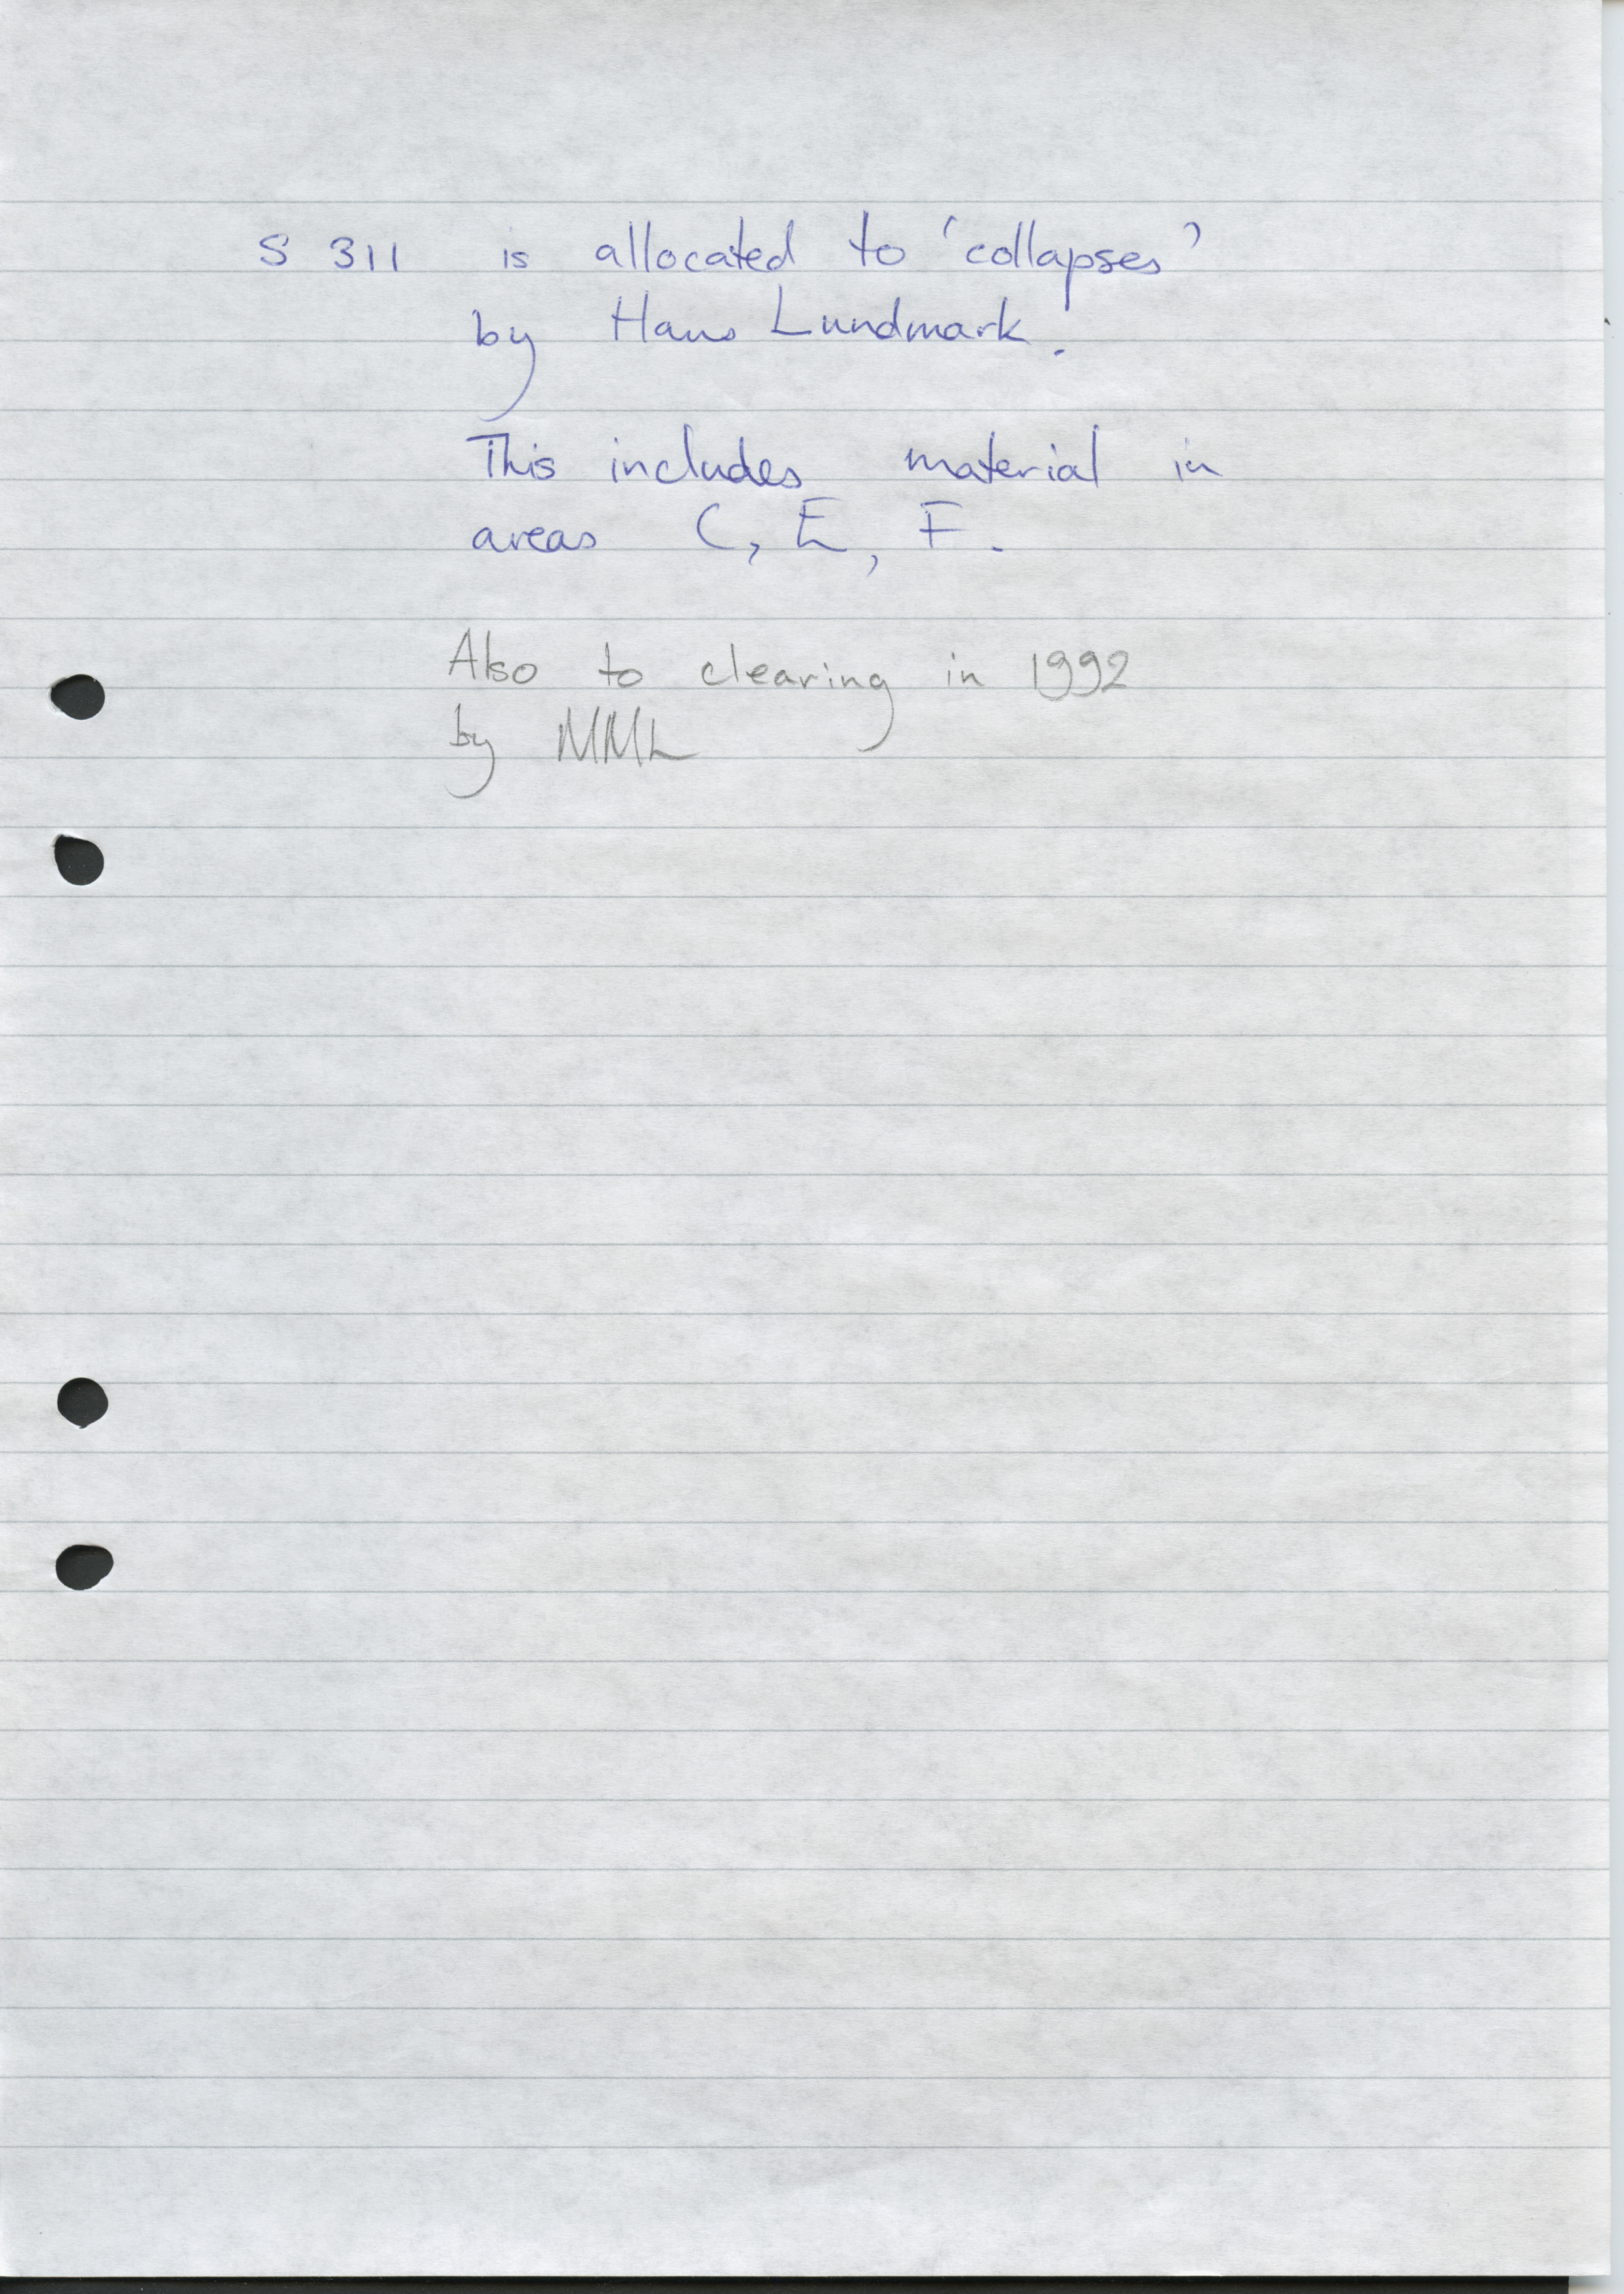 S 311 is allocated to 'collapses'
by Hans Lundmark.
This includes material in
areas C, E, F.
Also to clearing in 1992
by MML